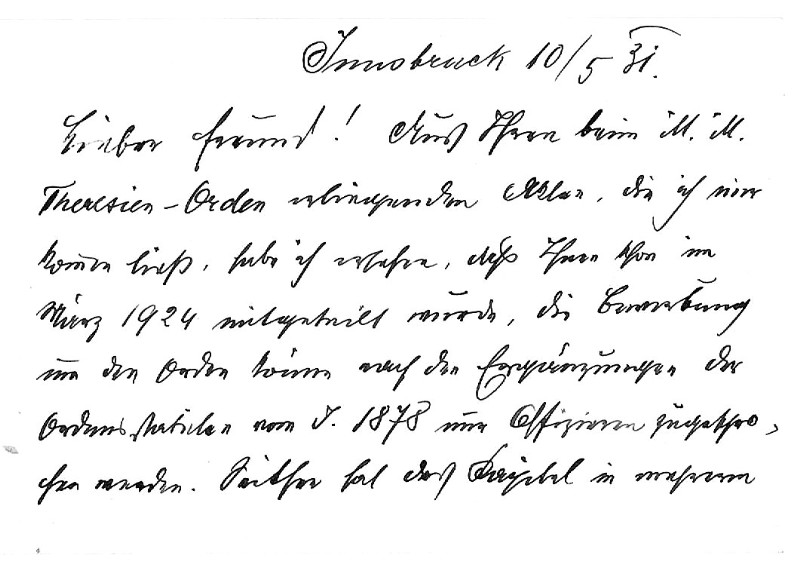 Innsbruck 10/5 31.
Lieber Freund! Aus Ihren beim M. M.
Theresien-Orden erliegenden Akten, die ich mir
kommen ließ, habe ich ersehen, daß Ihnen schon im
März 1924 mitgeteilt wurde, die Bewerbung
um den Orden könne nach den Ergänzungen der
Ordensstatuten vom J. 1878 nur Offizieren zugespro-
chen werden. Seither hat das Kapitel in mehreren